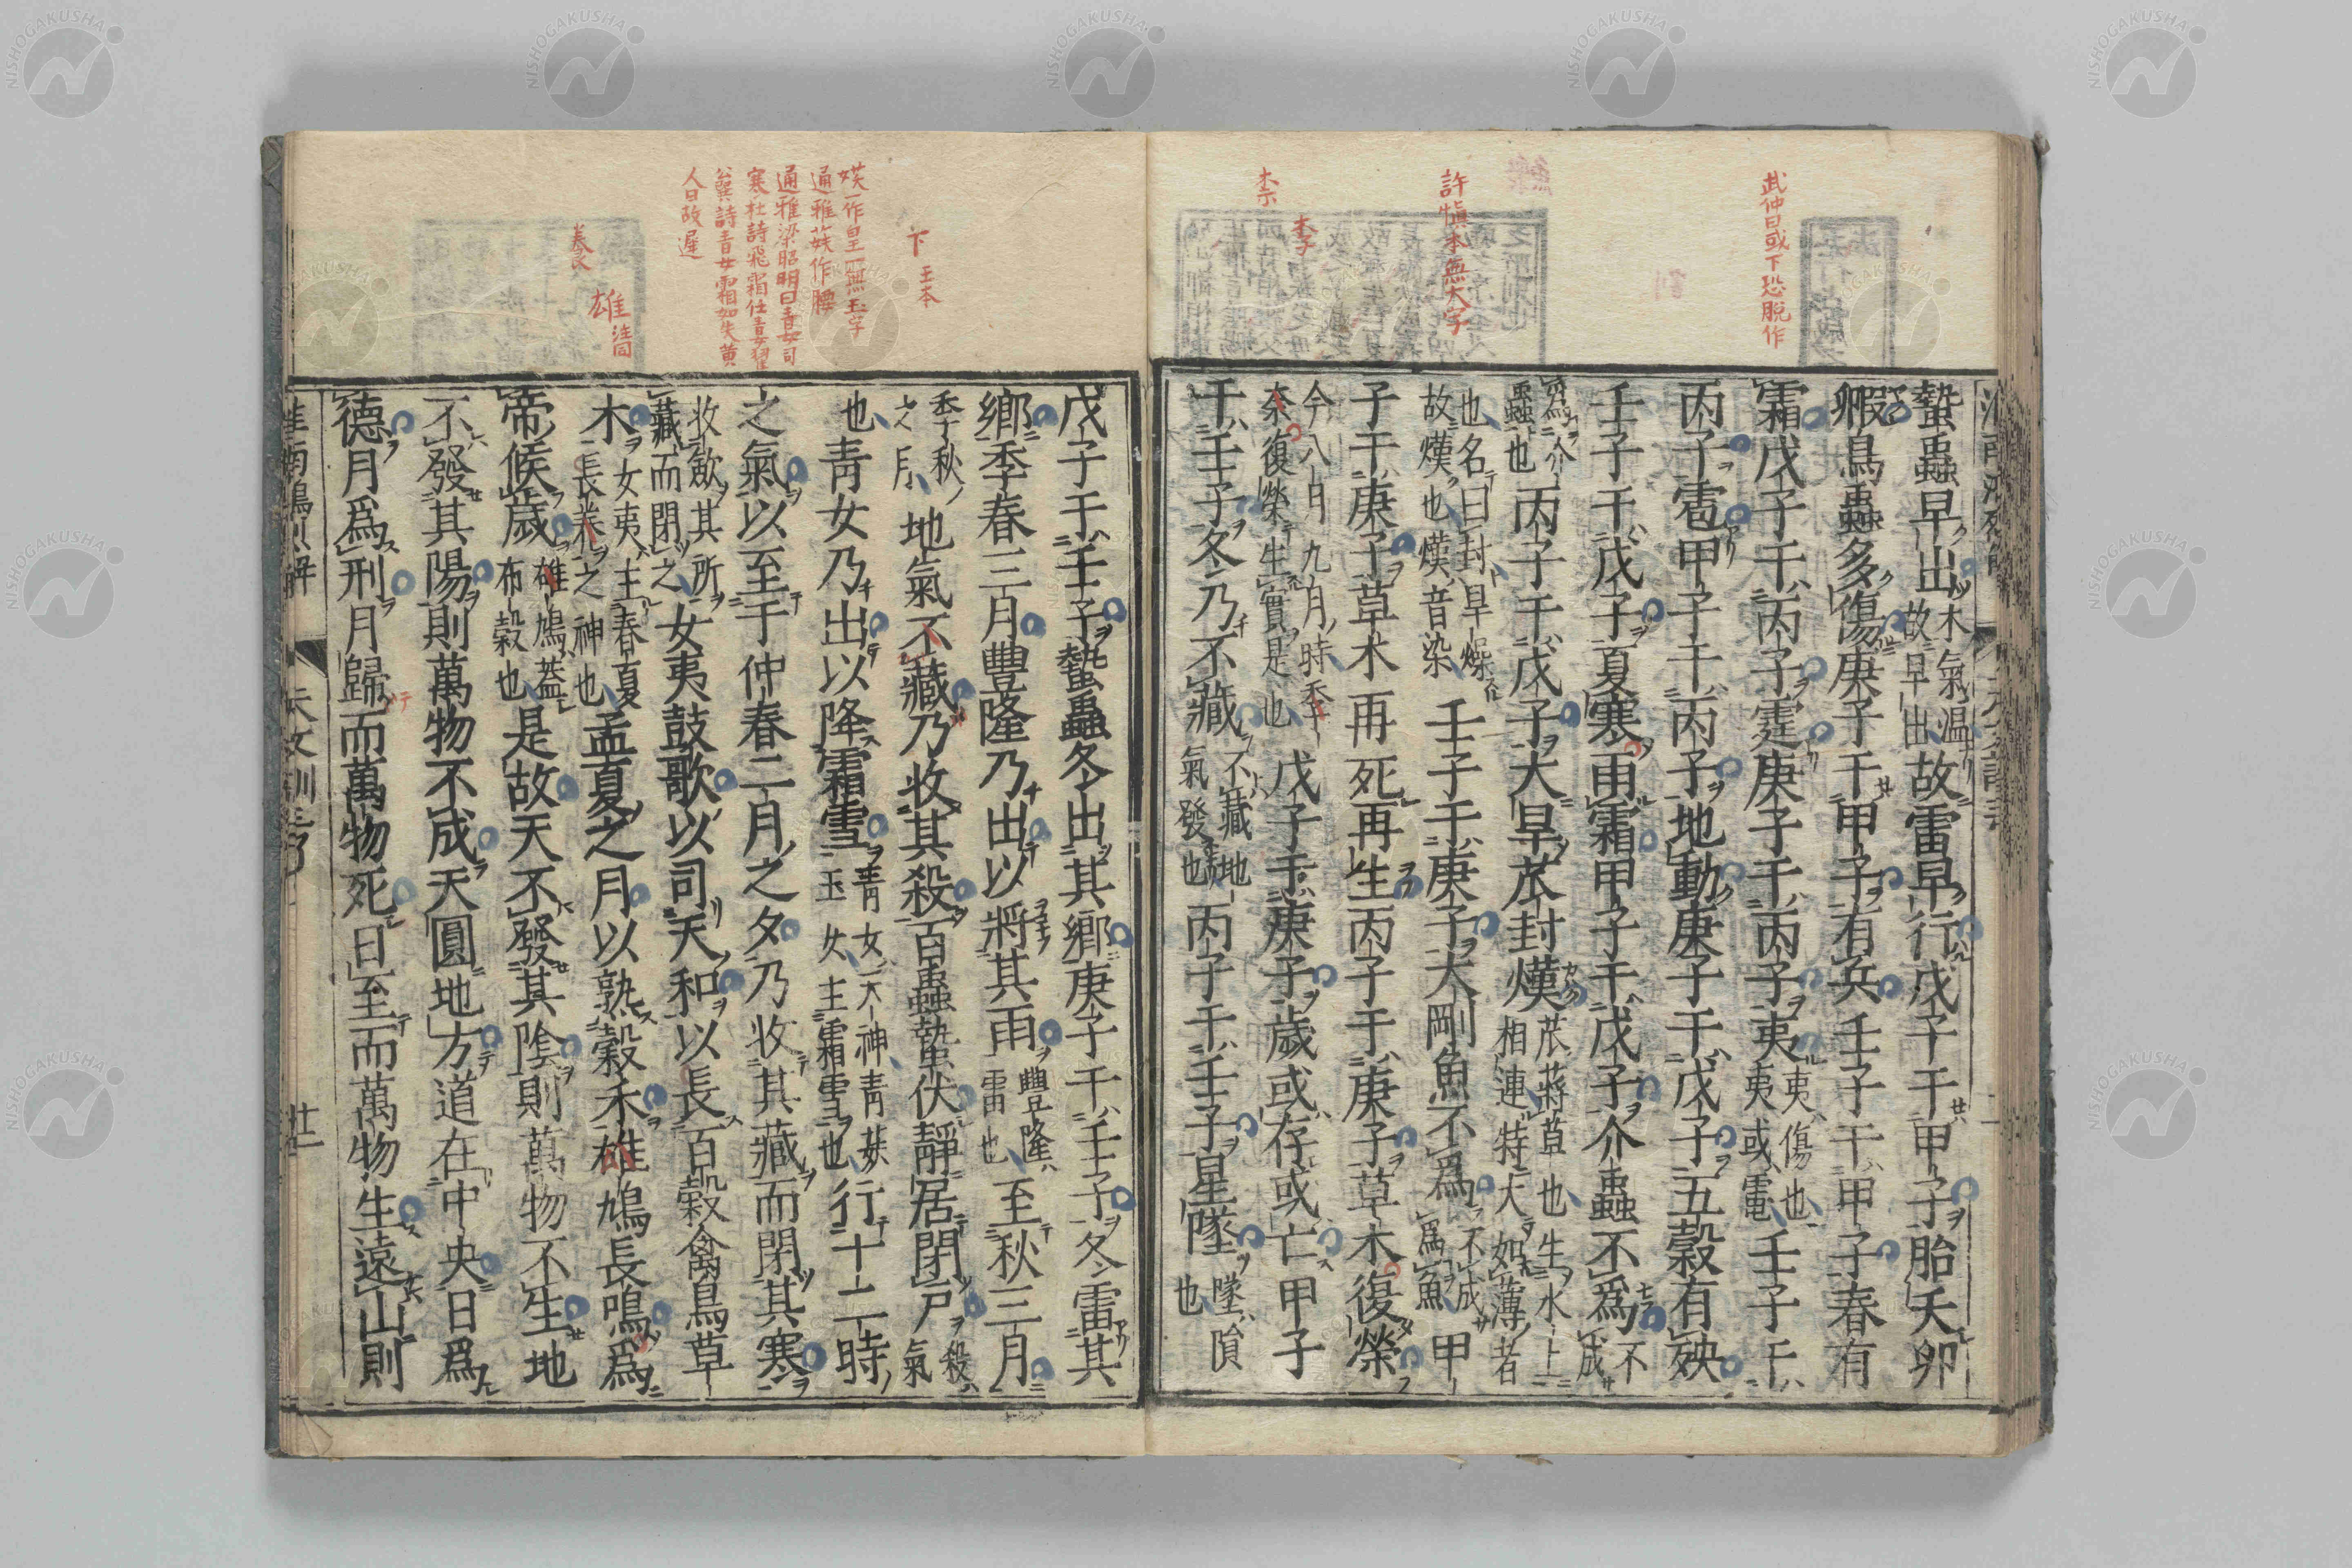 武仲曰或下恐脱作
許愼本無大字
李
蟄蟲早出木氣温故早出故雷早行戊子干甲子胎夭卵
毈鳥蟲多傷庚子干甲子有兵壬子干甲子春有
霜戊子干丙子霆庚子干丙子夷夷傷也夷或電壬子干
丙子雹甲子干丙子地動庚子干戊子五穀有殃
壬子干戊子夏寒雨霜甲子干戊子介蟲不爲不成
爲介蟲也丙子干戊子大旱苽封熯苽蔣草也生水上相連特大如薄者
也名曰封旱燥故熯也熯音染壬子干庚子大剛魚不爲不成爲魚甲
子干庚子草木再死再生丙子干庚子草木復榮
今八月九月時季奈復榮生實是也戊子干庚子歲或存或亡甲子
干壬子冬乃不藏不藏地氣發也丙子干壬子星墜墜隕也
戊子干壬子蟄蟲冬出其鄉庚子干壬子冬雷其
鄉季春三月豐隆乃出以將其雨豐隆雷也至秋三月
季秋之月地氣不藏乃收其殺百蟲蟄伏靜居閉戸殺氣
也青女乃出以降霜雪青女天神青娭玉女主霜雪也行十二時
之氣以至于仲春二月之夕乃收其藏而閉其寒
收歛其所藏而閉之女夷鼓歌以司天和以長百穀禽鳥草
木女夷主春夏長養之神也孟夏之月以熟穀禾雄鳩長鳴爲
帝候歲雄鳩蓋布穀也是故天不發其陰則萬物不生地
不發其陽則萬物不成天圓地方道在中央日爲
德月爲刑月歸而萬物死日至而萬物生遠山則
下 王本
娭一作皇一無玉字
通雅娭作腰
通雅梁昭明曰青女司
寒杜詩飛霜任青女翟
公巽詩青女霜如失黄
人曰故遲
養
雄 注同
淮南鴻烈解 天文訓三 廿一